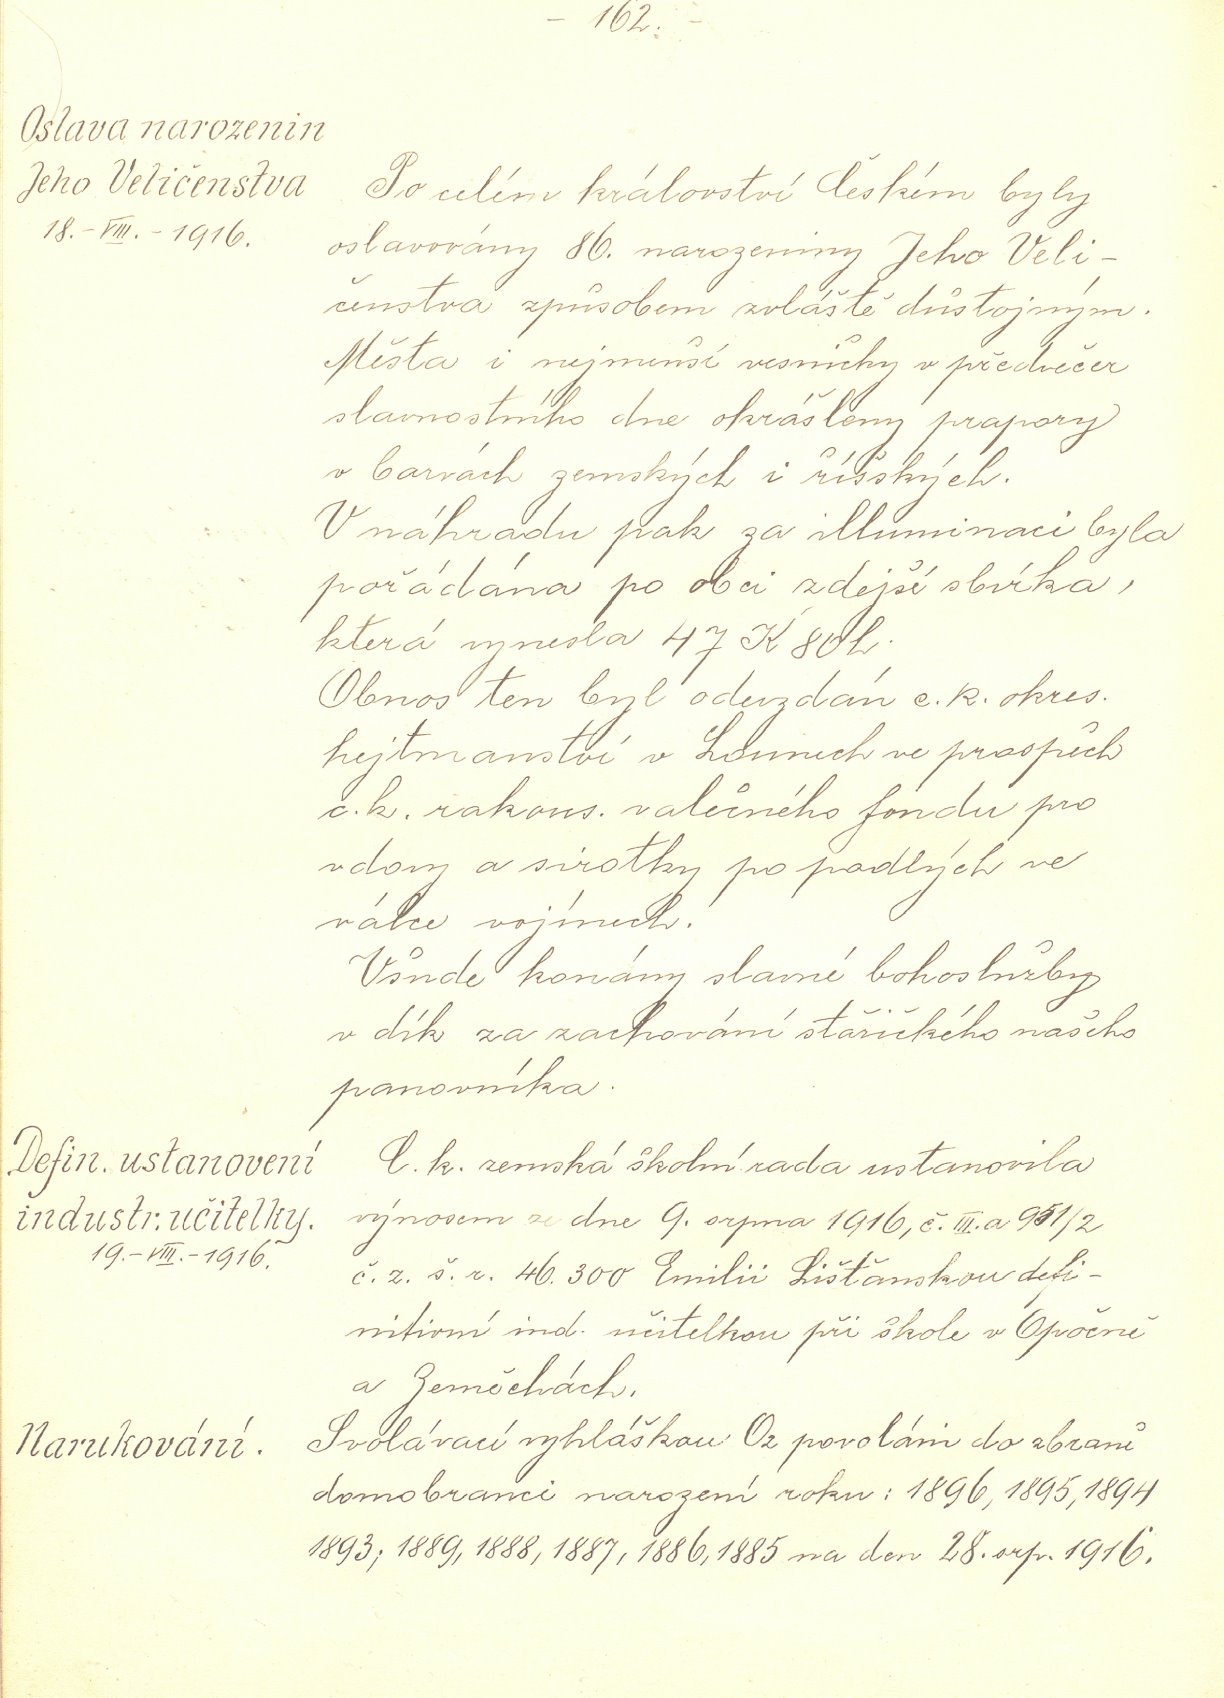 - 162. -
Oslava narozenin
Jeho Veličenstva
18.-VIII.-1916.
Po celém království Českém byly
oslavovány 86. narozeniny Jeho Veli-
čenstva způsobem zvláště důstojným.
Města i nejmenší vesničky v předvečer
slavnostního dne okrášleny prapory
v barvách zemských i říšských.
V náhradu pak za illuminaci byla
pořádána po obci zdejší sbírka,
která vynesla 47 K 80 h.
Obnos ten byl odevzdán c. k. okres.
hejtmanství v Lounech ve prospěch
c. k. rakous. válečného fondu pro
vdovy a sirotky po padlých ve
válce vojínech.
Všude konány slavné bohoslužby
v dík za zachování stařičkého našeho
panovníka.
Defin. ustanovení
industr. učitelky.
19.-VIII.-1916.
C. k. zemská školní rada ustanovila
výnosem ze dne 9. srpna 1916, č. III. a 951/2
č. z. š. r. 46.300 Emilii Lišťanskou defi-
nitivní ind. učitelkou při škole v Opočně
a Zeměchách.
Narukování.
Svolávací vyhláškou Oz povoláni do zbraně
domobranci narození roku: 1896, 1895, 1894
1893; 1889, 1888, 1887, 1886, 1885 na den 28. srp. 1916.